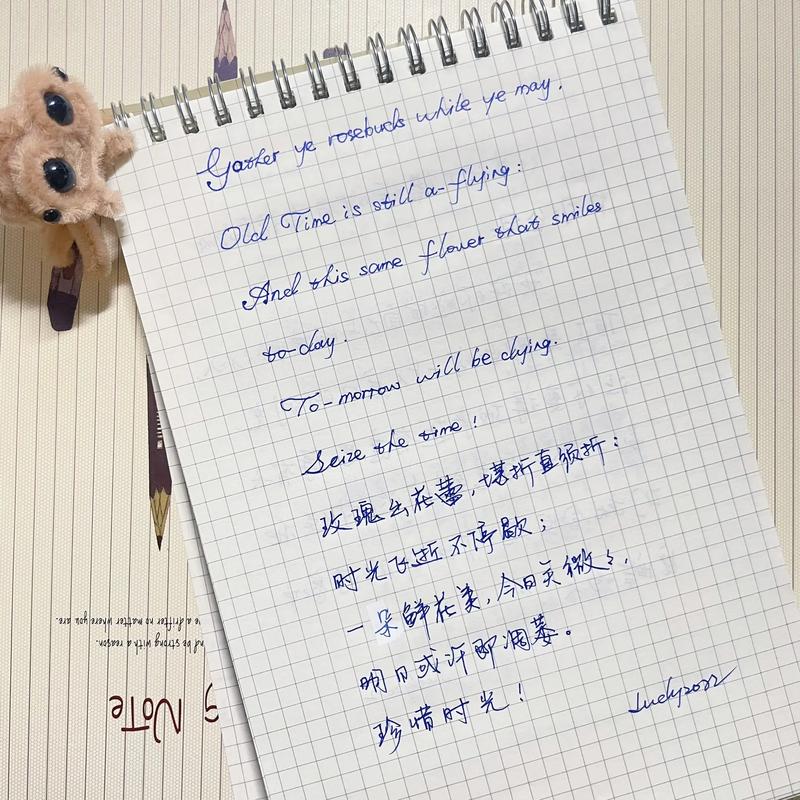 Gather ye rosebuds while ye may.
Old Time is still a-flying:
And this same flower that smiles
to-day.
To-morrow will be dying.
Seize the time!
玫瑰出花蕾,堪折直须折:
时光飞逝不停歇;
一朵鲜花美,今日笑微微,
明日或许即凋萎。
珍惜时光!
Lucky2022
nd be strong with a reason.
e a drifter no matter where you are.
g NoTe